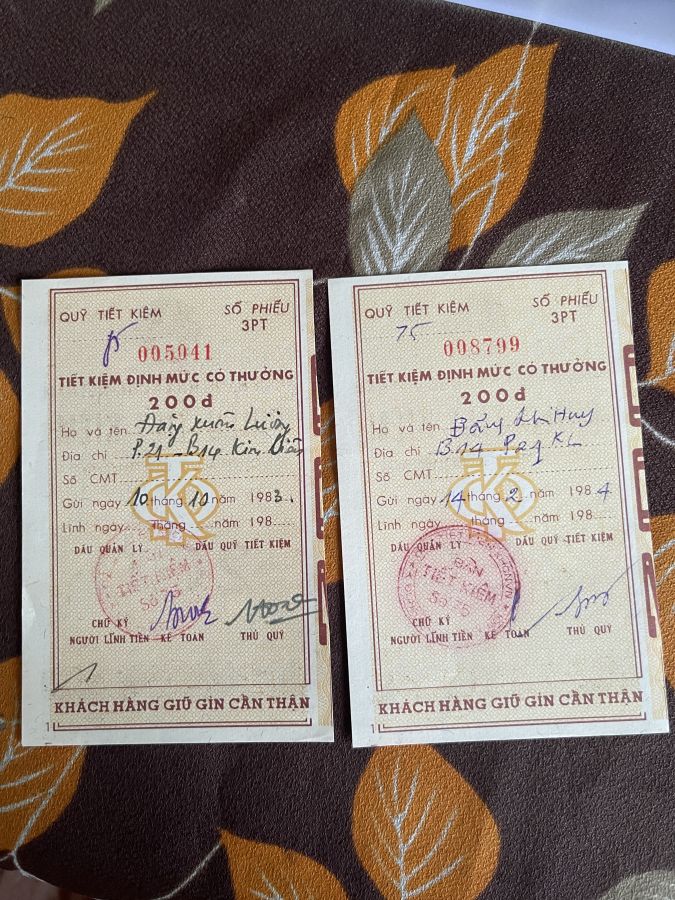 QUỸ TIẾT KIỆM
SỐ PHIẾU
3PT
005941
TIẾT KIỆM ĐỊNH MỨC CÓ THƯỞNG
200đ
Họ và tên Đặng Xuân
Địa chỉ P.21 - B14 Kim Liên
Số CMT
Gửi ngày 10 tháng 10 năm 1983.
Lĩnh ngày tháng năm 198
DẤU QUẢN LÝ DẤU QUỸ TIẾT KIỆM
TIẾT KIỆM
CHỮ KÝ
NGƯỜI LĨNH TIỀN KẾ TOÁN THỦ QUỸ
KHÁCH HÀNG GIỮ GÌN CẨN THẬN
1
QUỸ TIẾT KIỆM
SỐ PHIẾU
3PT
75
008799
TIẾT KIỆM ĐỊNH MỨC CÓ THƯỞNG
200đ
Họ và tên Huy
Địa chỉ B14 P21 KL
Số CMT
Gửi ngày 14 tháng 2 năm 1984
Lĩnh ngày tháng năm 198
DẤU QUẢN LÝ DẤU QUỸ TIẾT KIỆM
BÀN
TIẾT KIỆM
CHỮ KÝ
NGƯỜI LĨNH TIỀN KẾ TOÁN THỦ QUỸ
KHÁCH HÀNG GIỮ GÌN CẨN THẬN
1